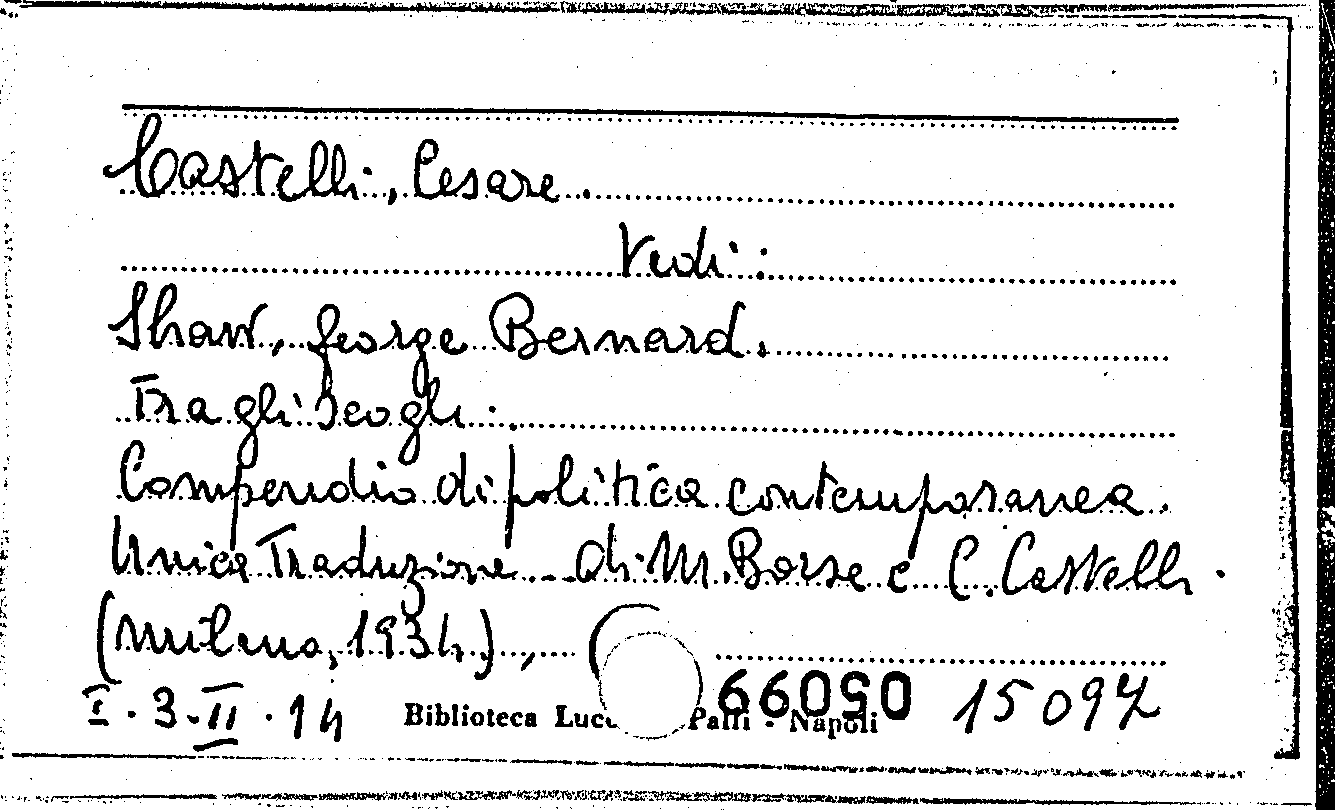 Castelli, Cesare.
Vedi:
Shaw, George Bernard.
Fra gli scogli.
Compendio di politica contemporanea.
Unica Traduzione di M. Borse e C. Castelli.
(Milano, 1934.), (
I. 3. II. 14 Biblioteca Lucc Palli - Napoli 15097
05099